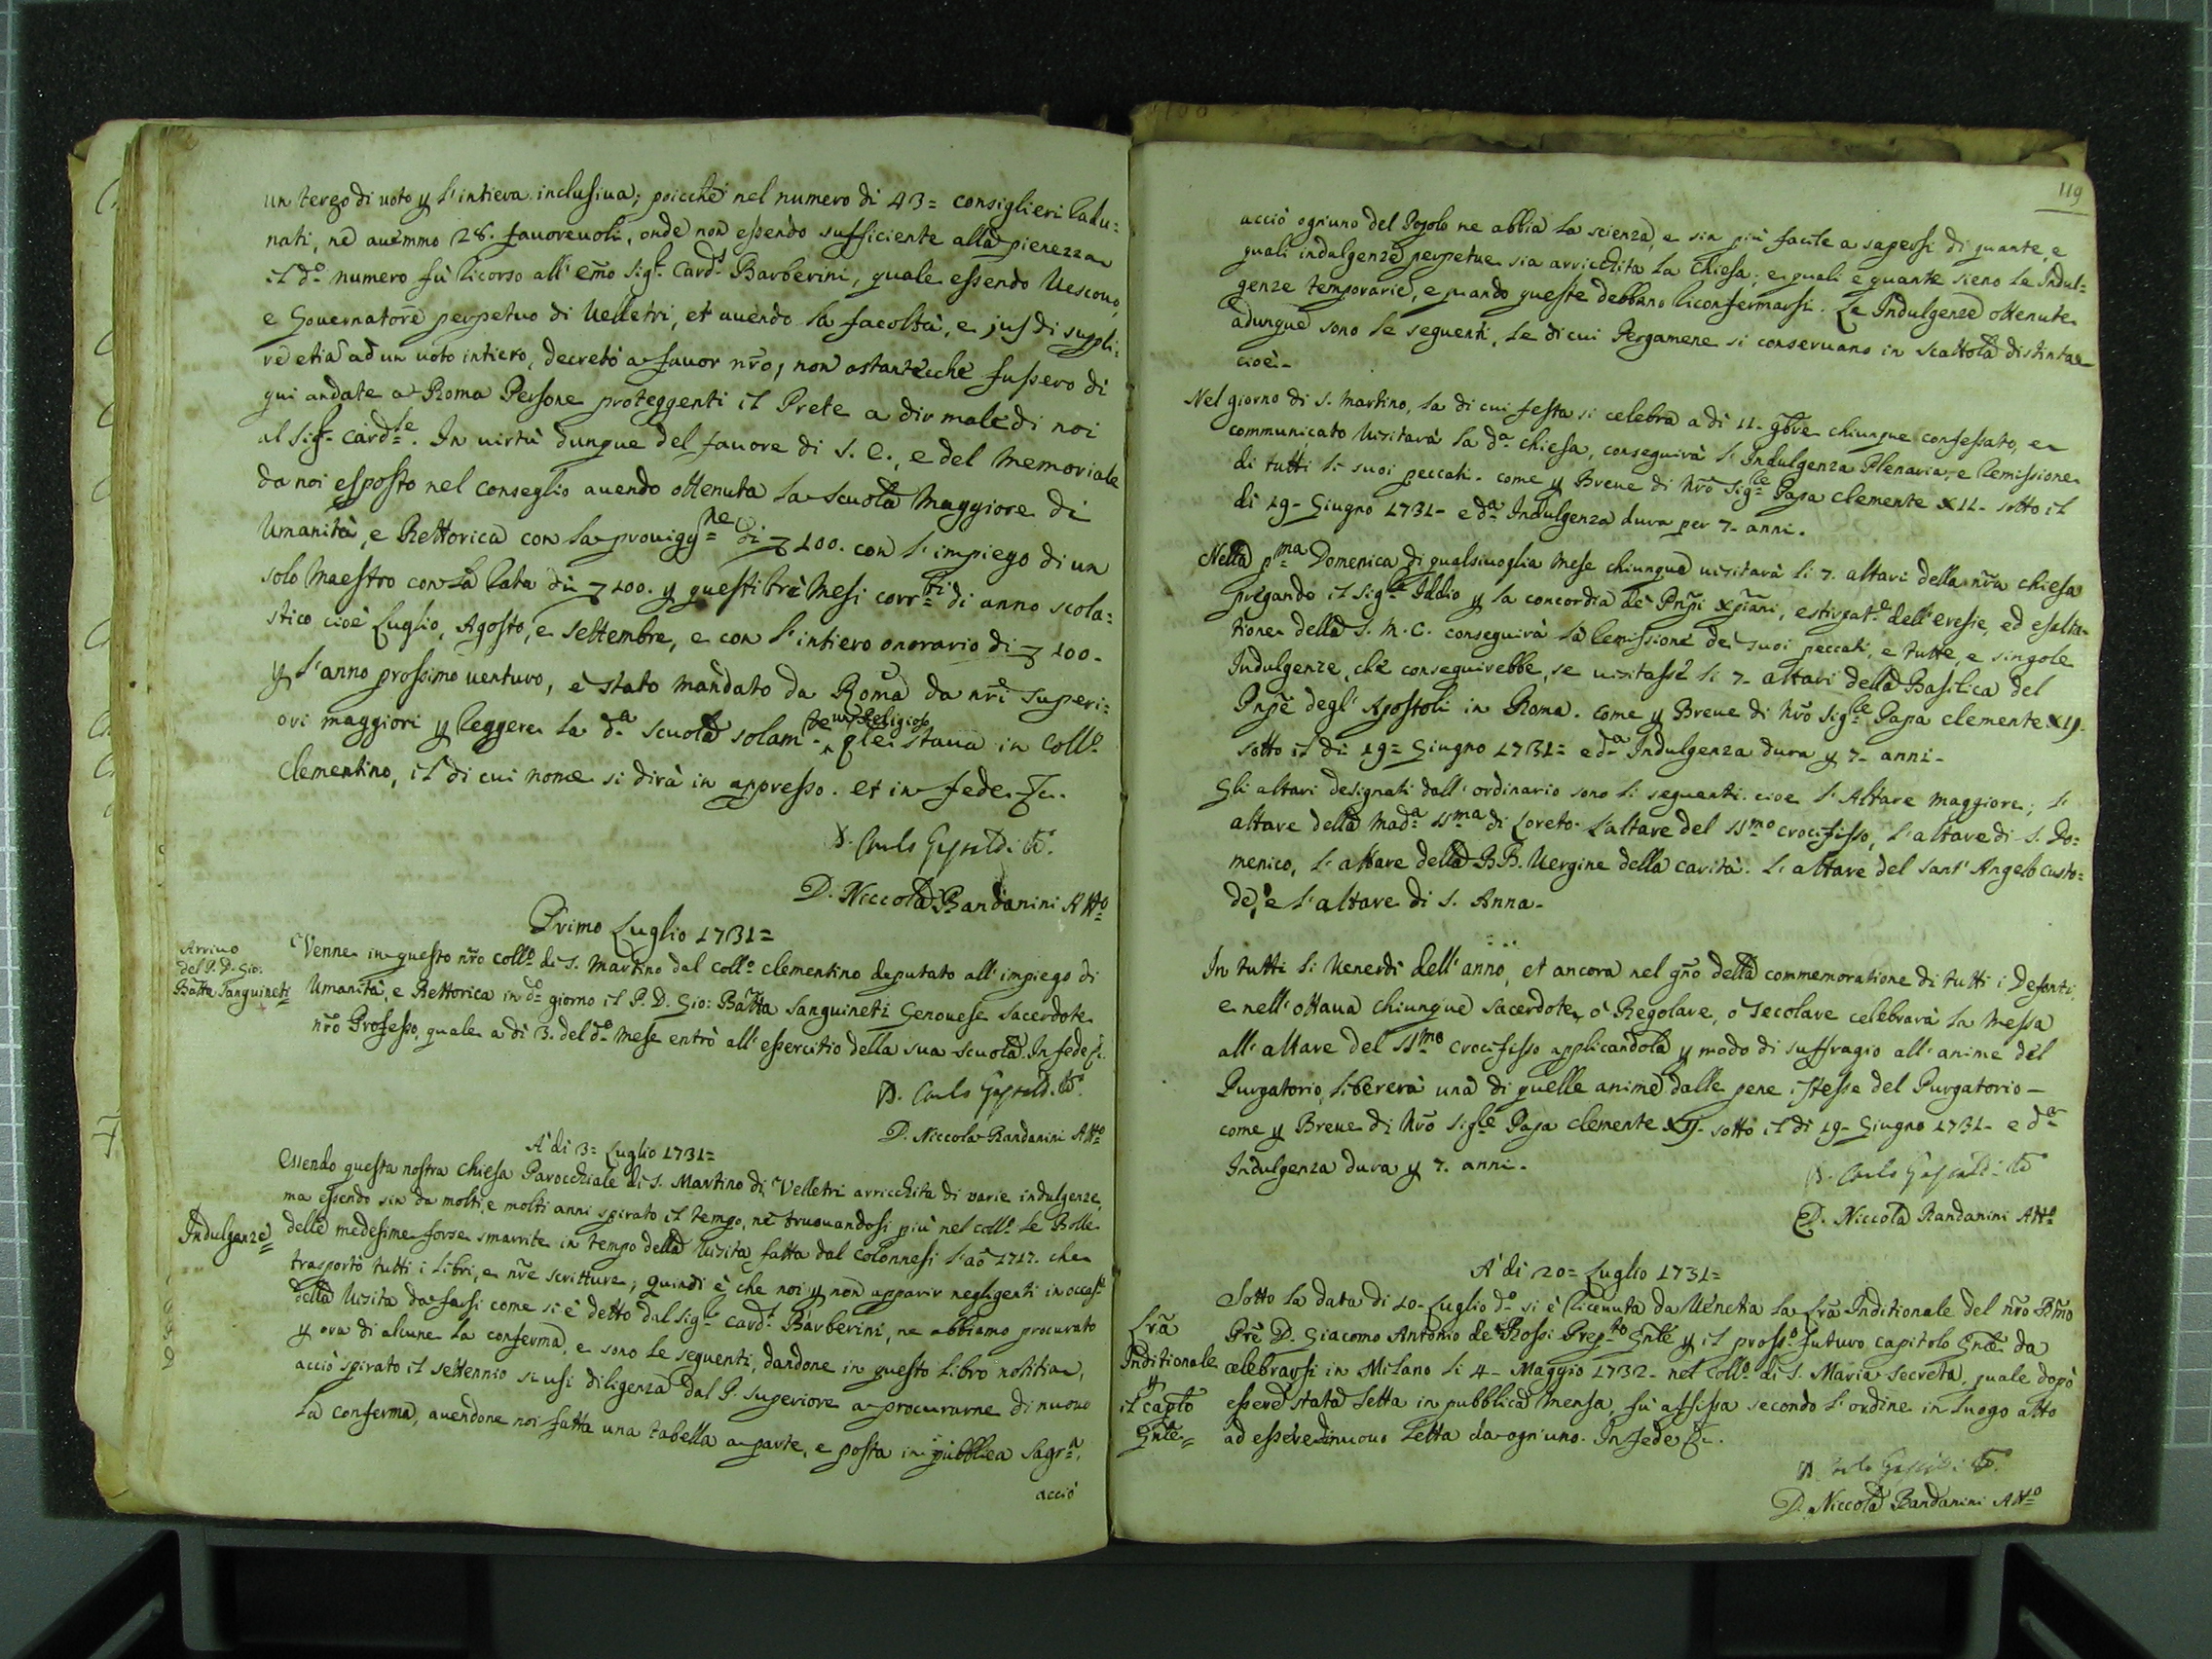 un terzo di uoto p l'intiera inclusiua; poicchè nel numero di 43= consiglieri radu:
nati, ne auemmo 28. fauoreuoli, onde non essendo sufficiente alla pienezza
il do numero fù ricorso all' emo Sigr Cardl Barberini, quale essendo Uescouo,
e Gouernatore perpetuo di Uelletri, et auendo la facoltà, e jus di suppli:
re etia ad un uoto intiero, decretò a fauor nro, non ostantecchè fussero di
qui andate a Roma Persone proteggenti il Prete a dir male di noi
al Sigr Cardle. In uirtù dunque del fauore di S. E., e del memoriale
da noi esposto nel conseglio auendo ottenuta la Scuola Maggiore di
Umanità, e Rettorica con la prouigne di 100. con l'impiego di un
solo Maestro con la rata di 100. p questi trè Mesi corrti di anno scola:
stico cioè Luglio, Agosto, e Settembre, e con l'intiero onorario di 100-
p l'anno prossimo uenturo, è stato mandato da Roma da nri Superi:
ori maggiori p leggere la da scuola solamte un Religioso, qle staua in Collo
Clementino, il di cui nome si dirà in appresso. et in fede &c.
D. Carlo Gaspaldi
D. Niccola Randanini Atto
Primo Luglio 1731=
Arriuo
del P. D. Gio:
Batta Sanguineti
Venne in questo nro collo di S. Martino dal collo clementino deputato all' impiego di
Umanità, e Rettorica in do giorno il P. D. Gio: Batta Sanguineti Genouese Sacerdote
nro Professo, quale a di 3. del do mese entrò all' essercitio della sua scuola. In fede &c.
D. Carlo Gaspaldi
D. Niccola Randanini Atto
A di 3= Luglio 1731=
Indulgenze=
Essendo questa nostra Chiesa Parocchiale di S. Martino di Velletri arricchita di varie indulgenze,
ma essendo sin da molti, e molti anni spirato il tempo, nè truouandosi più nel collo le Bolle
delle medesime forse smarrite in tempo della Uisita fatta dal Colonnesi l'ao 1717. che
trasportò tutti i libri, e nre scritture; quindi è che noi p non apparir negligenti in occase
della Uisita da farsi come si è detto dal Sigr Cardl Barberini, ne abbiamo procurato
p ora di alcune la conferma, e sono le seguenti, dandone in questo libro notitia,
acciò spirato il settennio si usi diligenza dal P. Superiore a procurarne di nuouo
la conferma, auendone noi fatta una tabella a parte, e posta in pubblica Sagra,
acciò
119
acciò ogniuno del Popolo ne abbia la scienza, e sia più facile a sapersi di quante, e
quali indulgenze perpetue sia arricchita la Chiesa; e quali e quante sieno le Indul=
genze temporarie, e quando queste debbano riconfermarsi. Le Indulgenze ottenute
adunque sono le seguenti, le di cui Pergamene si conseruano in scattola distinta
cioè-
Nel giorno di S. Martino, la di cui festa si celebra a di 11- 9bre chiunque confessato, e
communicato uisitarà la da chiesa, conseguirà l'Indulgenza Plenaria, e remissione
di tutti li suoi peccati. come p Breue di Nro Sigre Papa Clemente XII- sotto il
di 19- Giugno 1731- e da Indulgenza dura per 7- anni.
Nella pma Domenica di qualsiuoglia Mese chiunque uisitarà li 7. altari della nra chiesa
pregando il Sigre Iddio p la concordia de' Pnpi Xpiani, estirpate dell' eresie, ed esalta-
tione della S. M. C. conseguirà la remissione de' suoi peccati, e tutte, e singole
Indulgenze, che conseguirebbe, se uisitasse li 7- altari della Basilica del
Pnpe degl' Apostoli in Roma. come p Breue di Nro Sigre Papa Clemente XII-
sotto il di 19= Giugno 1731= e da Indulgenza dura p 7- anni-
Gli altari designati dall' ordinario sono li seguenti. cioe l'Altare maggiore; l'
altare della Mada SSma di Loreto. L'altare del SSmo Crocifisso, l'altare di S. Do=
menico, l'altare della BB. Uergine della carità. l'altare del Sant' Angelo custo=
de, e l'altare di S. Anna-
In tutti li Uenerdi dell' anno, et ancora nel gno della commemoratione di tutti i Defonti,
e nell' ottaua chiunque Sacerdote, ò Regolare, ò Secolare celebrarà la Messa
all' altare del SSmo Crocifisso applicandola p modo di suffragio all' anime del
Purgatorio, libererà una di quelle anime dalle pene istesse del Purgatorio-
come p Breue di Nro Sigre Papa Clemente XII- sotto il di 19- Giugno 1731- e da
Indulgenza dura p 7. anni-
D. Carlo Gaspaldi
D. Niccola Randanini Atto
A di 20= Luglio 1731=
Lra
Inditionale
p
il caplo
Gnle=
Sotto la data di 10- Luglio do si è riceuuta da Uenetia la Lra Inditionale del nro Rmo
Pre D. Giacomo Antonio de Rossi Prepto Gnle p il prosso futuro capitolo Gnle da
celebrarsi in Milano li 4- Maggio 1732- nel Collo di S. Maria Secreta, quale dopò
essere stata letta in pubblica mensa, fù affissa secondo l'ordine in luogo alto
ad essere di nuouo letta da ogn'uno. In fede &c.
D. Carlo Gaspaldi
D. Niccola Randanini Atto